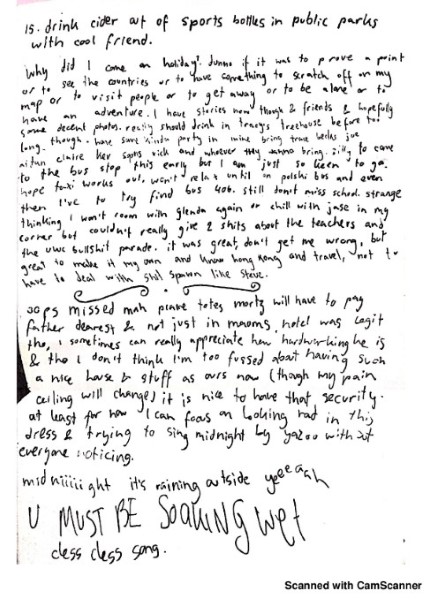 15. drink cider out of sports bottles in public parks
with cool friend.
Why did I come on holiday? dunno if it was to prove a point
or to see the countries or to have something to scratch off on my
map or to visit people or to get away or to be alone or to
have an adventure. I have stories now though & friends & hopefully
some decent photos. really should drink in tracey's treehouse before too
long. though. have some kinda party in mine bring trave becks joe
claire her sapns rich and whoever they wanna bring. silly to come
to the bus stop this early but I am just so keen to go.
hope taxi works out, won't relax until on polshi bus and even
then I've to try find bus 406. still don't miss school. strange
thinking I won't room with glenda again or chill with jase in my
corner but couldn't really give 2 shits about the teachers and
the uwc bullshit parade. it was great, don't get me wrong, but
great to make it my own and know hong kong and travel, not to
have to deal with shit spawn like Steve.
oops missed mah plane totes mortz will have to pay
father dearest & not just in maoms. hotel was legit
tho, I sometimes can really appreciate how hardworking he is
& tho I don't think I'm too fussed about having such
a nice house & stuff as ours now (though my pain
ceiling will change) it is nice to have that security.
at least for now I can focus on looking rad in this
dress & trying to sing midnight by yazoo without
everyone noticing.
midniiiiight it's raining outside yeeeaah
U MUST BE SOAKING WET
class class song.
Scanned with CamScanner